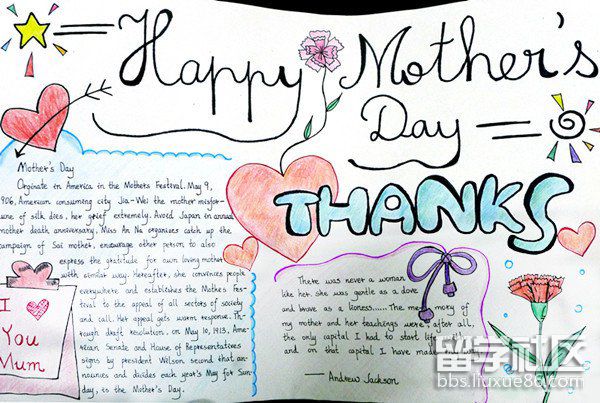 Happy Mother's
Day
THANKS
Mother's Day
Orginate in America in the Mothers Festival. May 9,
906, American consuming city Jia-Wei the mother misfor-
une of silk dies, her grief extremely. Avoid Japan in annual
mother death anniversary, Miss An Na organises catch up the
ampaign of Sai mother, encourage other person to also
express the gratitude for own loving mother
with similar way. Hereafter, she convinces people
everywhere and establishes the Mothes Fes-
tival to the appeal of all sectors of society
and call. Her appeal gets warm response. Th-
rough draft resolution. on May 10, 1913, Ame-
rican Senate and House of Representatives
signs by president Wilson second that an-
nounces and decides each year's May for Sun-
day, is the Mother's Day.
I
You
Mum
There was never a woman
like her. she was gentle as a dove
and brave as a lioness......The memory of
my mother and her teachings were, after all,
the only capital I had to start life
and on that capital I have made my
— Andrew Jackson
留学社区
bbs.liuxue86.com